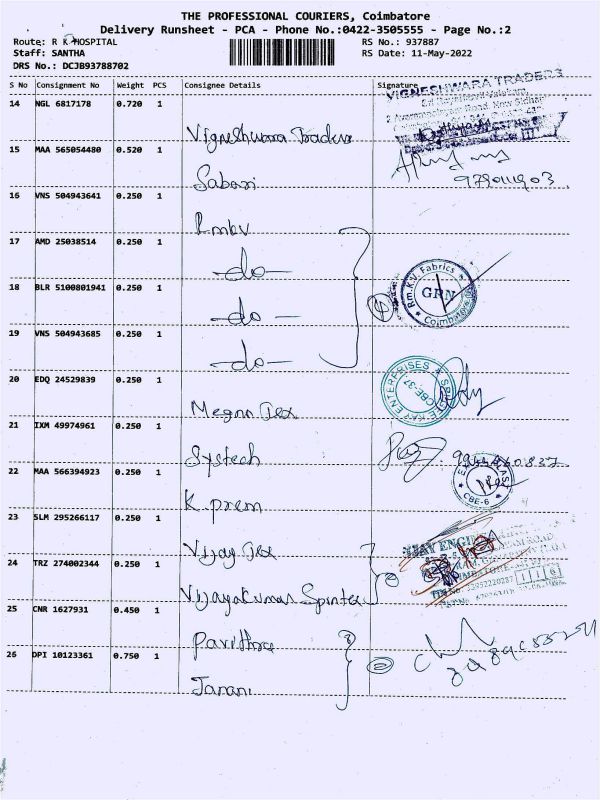 THE PROFESSIONAL COURIERS, Coimbatore
Delivery Runsheet - PCA - Phone No.:0422-3505555 - Page No.:2
Route: R K HOSPITAL RS No.: 937887
Staff: SANTHA RS Date: 11-May-2022
DRS No.: DCJB93788702
S No Consignment No Weight PCS Consignee Details Signature
14 NGL 6817178 0.720 1 Vigneshwara Traders
VIGNESHWARA TRADERS
15 MAA 565054480 0.520 1 Sabari
16 VNS 504943641 0.250 1 Rmkv
17 AMD 25038514 0.250 1 -do-
18 BLR 5100801941 0.250 1 -do-
Rm.K.V. Fabrics
GRN
Coimbatore
4
19 VNS 504943685 0.250 1 -do-
20 EDQ 24529839 0.250 1 Megna Tex
ENTERPRISES
CBE-37
21 IXM 49974961 0.250 1 Systech
22 MAA 566394923 0.250 1 K. prem
CBE-6
23 SLM 295266117 0.250 1 Vijay Tex
24 TRZ 274002344 0.250 1 Vijayakumar Spintex
25 CNR 1627931 0.450 1 Pavithra
26 DPI 10123361 0.750 1 Janani